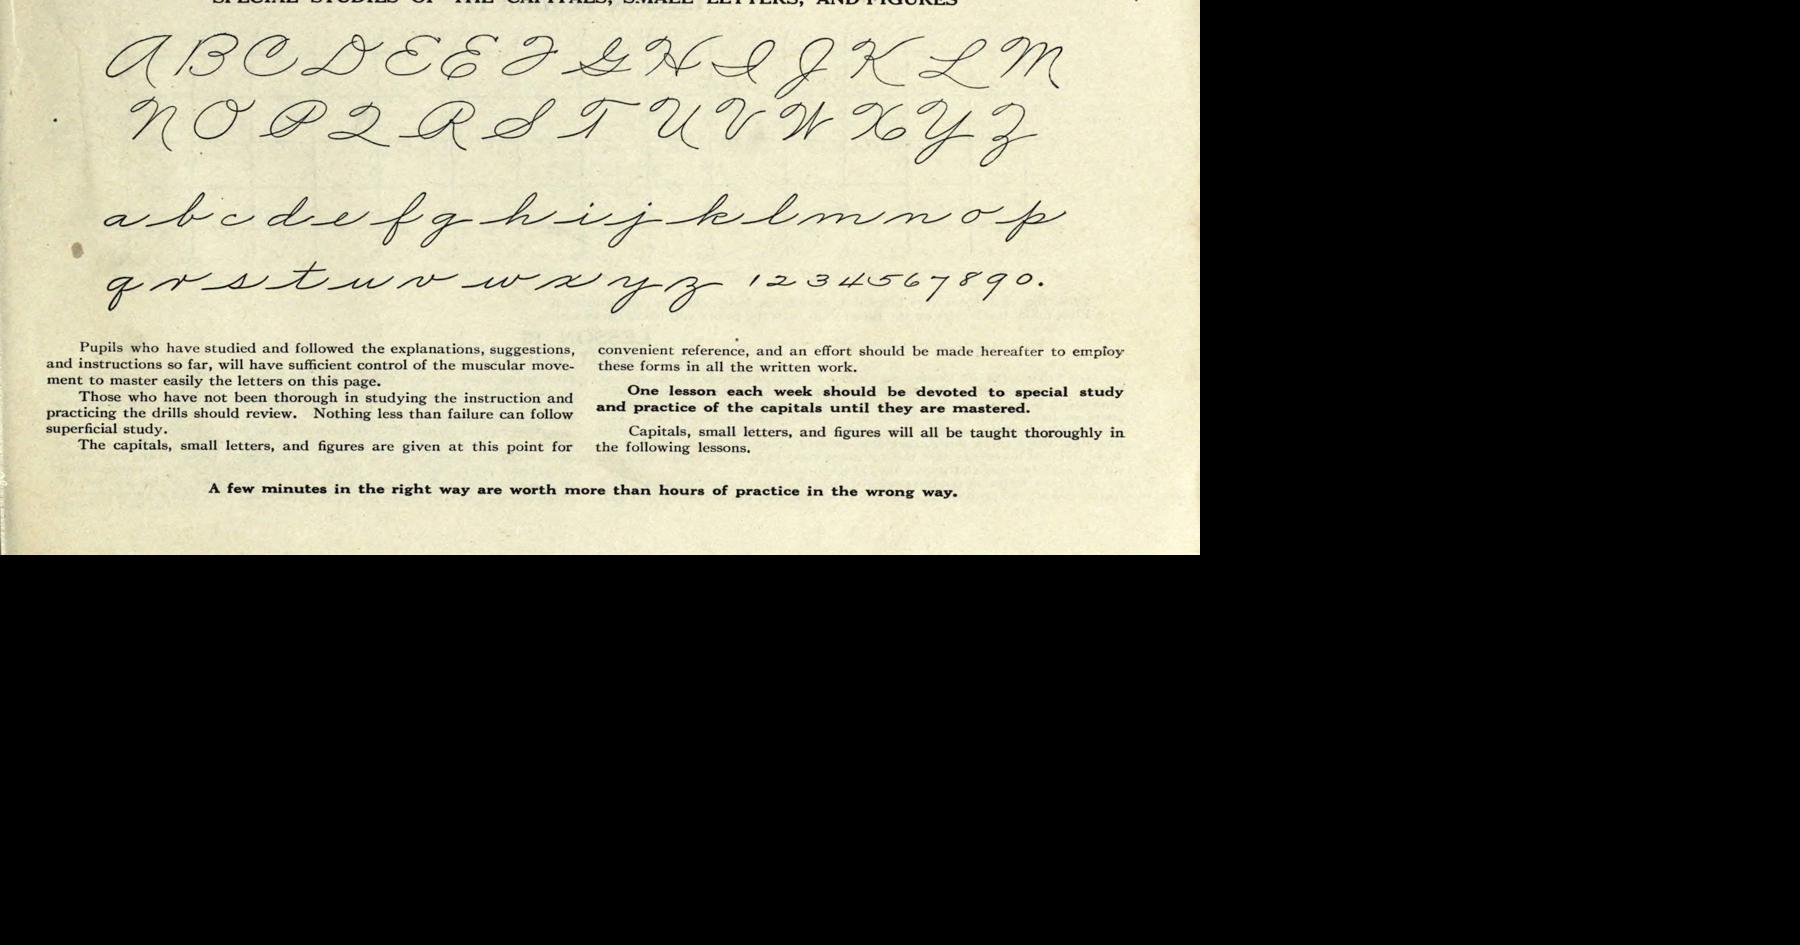 SPECIAL STUDIES OF THE CAPITALS, SMALL LETTERS, AND FIGURES
A B C D E E F G H I J K L M
N O P Q R S T U V W X Y Z
a b c d e f g h i j k l m n o p
q r s t u v w x y z 1 2 3 4 5 6 7 8 9 0.
Pupils who have studied and followed the explanations, suggestions,
and instructions so far, will have sufficient control of the muscular move-
ment to master easily the letters on this page.
Those who have not been thorough in studying the instruction and
practicing the drills should review. Nothing less than failure can follow
superficial study.
The capitals, small letters, and figures are given at this point for
convenient reference, and an effort should be made hereafter to employ
these forms in all the written work.
One lesson each week should be devoted to special study
and practice of the capitals until they are mastered.
Capitals, small letters, and figures will all be taught thoroughly in
the following lessons.
A few minutes in the right way are worth more than hours of practice in the wrong way.